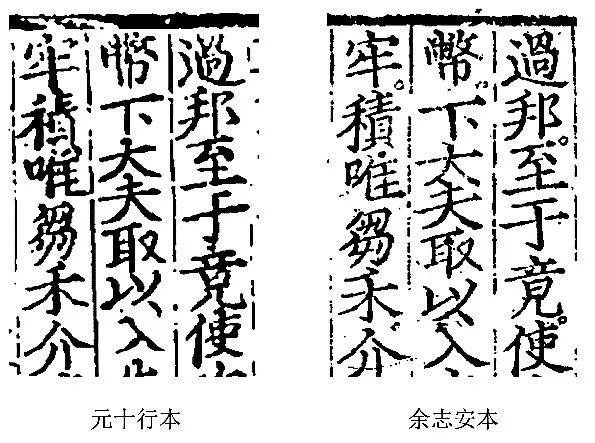 過邦至于竟使
幣下大夫取以入
牢積唯芻禾介
元十行本
過邦。至于竟。使
幣。下大夫取以入
牢。積唯芻禾。介
余志安本